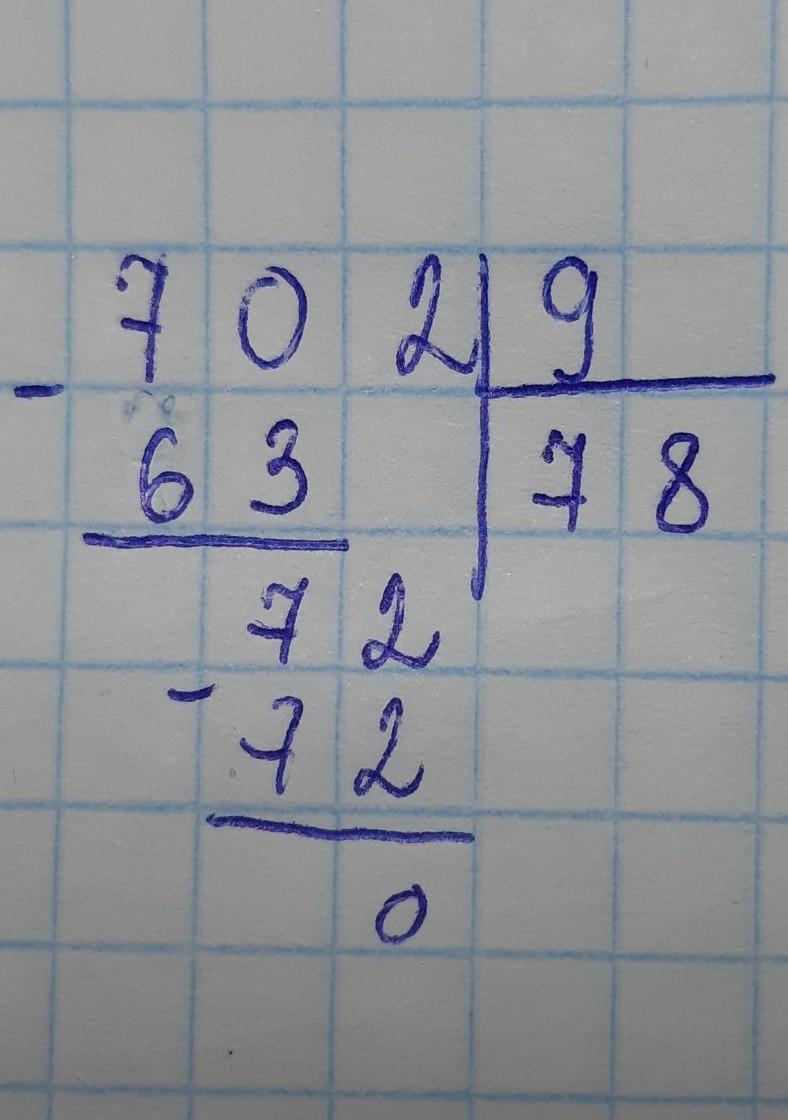 702 9
- 63 78
72
- 72
0